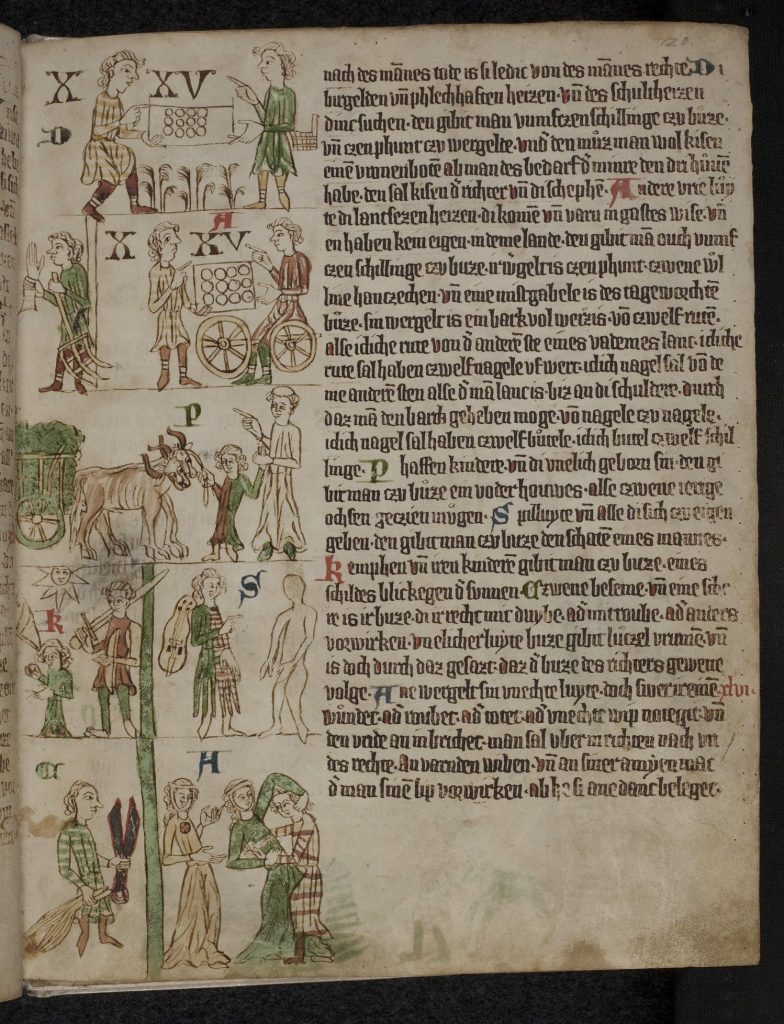 120
X XV
D
A
X XV
P
S
K
A
C
nach des mānes tode is si ledic von des mānes rechte. Di
birgelden vn̄ phlechhaften heizen. vn̄ des schultheizen
dinc suchen. den gibit man vumfczen schillinge czv buze.
vn̄ czen phunt czv wergelte. vnd den můz man wol kisen
einē vronenbotē ab man des bedarf d' minre den dri hůuē
habe. den sal kisen d' richter vn̄ di schephē. Andere vrie luy
te di lantsezen heizen. di komē vn̄ varn in gastes wise. vn̄
en haben kein eigen. in deme lande. den gibit mā ouch vumf
czen schillinge czv buze. ir w'gelt is czen phunt. czwene wl
line hanczechen. vn̄ eine mistgabele is des tageworchtē
bůze. sin wergelt is ein barkvol weizis. vō czwelf rutē.
alse icliche rute von d' anderē ste eines vademes lanc. icliche
rute sal haben czwelf nagele vf wert. iclich nagel sal vō de
me anderē sten alse d' mā lanc is. biz an di schuldere. durch
daz mā den barch geheben moge. vō nagele czv nagele.
iclich nagel sal haben czwelf bůtele. iclich butel czwelf schil
linge. Phaffen kindere. vn̄ di vnelich geborn sin. den gi
bit man czv bůze ein voder houwes. alse czwene ierige
ochsen geczien můgen. Spilluyte vn̄ alle di sich czv eigen
geben. den gibit man czv buze den schatē eines mannes.
Kemphen vn̄ iren kinderē gibit man czv buze. eines
schildes blic kegen d' sunnen. Czwene beseme. vn̄ eine sche
re is ir buze. di ir recht mit duybe. ad' mit roube. ad' anders
vorwirken. vnelicher luyte buze gibit lůczel vrumē. vn̄
is doch durch daz gesazt. daz d' buze des richters gewette
volge. Ane wergelt sin vnechte luyte. doch swer ir einē xlvi.
wůndet. ad' roubet. ad' totet. ad' vnechte wip notegit. vn̄
den vride an in brichet. man sal vber in richten nach vri
des rechte. An varnden wiben. vn̄ an siner amyen mac
d' man sinē lip vorwirken. ab he si ane danc beleget.